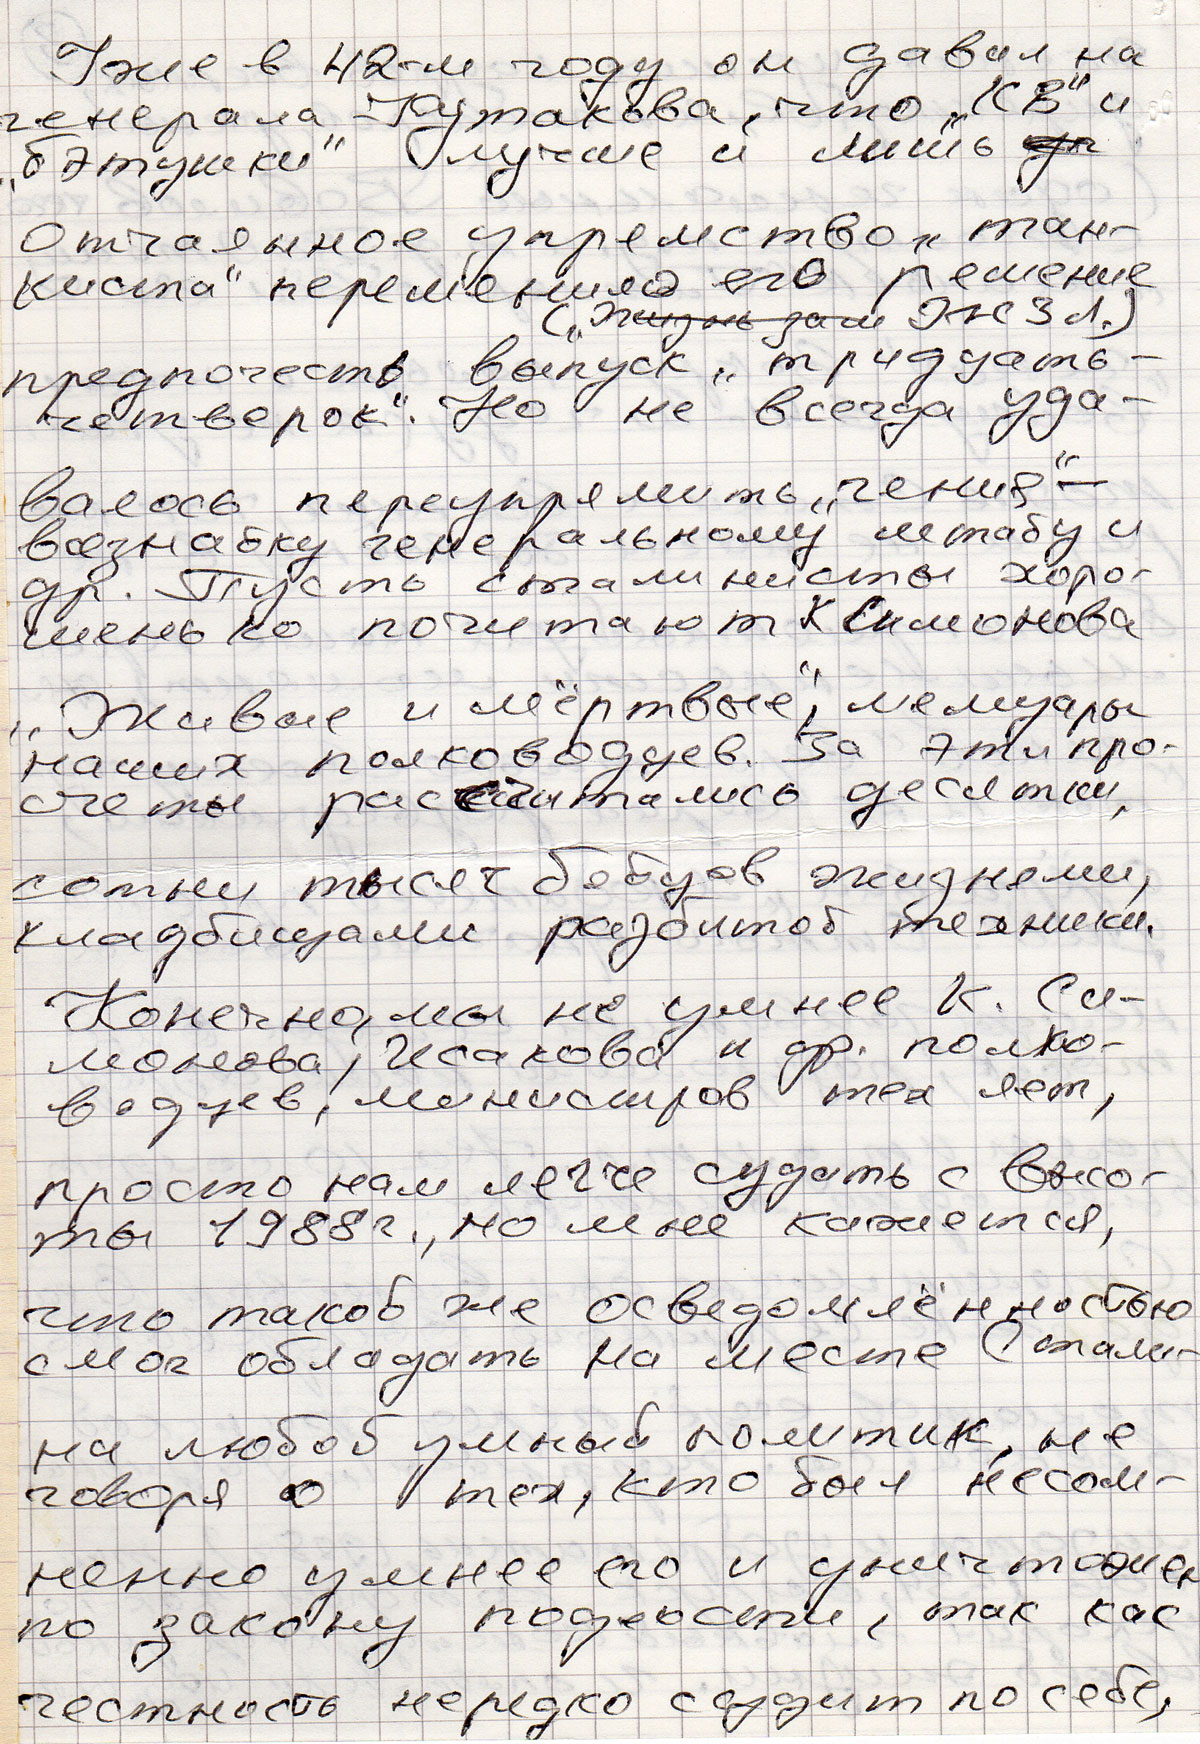 Уже в 42-м году он давил на
генерала Кутакова, что „КВ" и
„бэтушки" лучше и лишь
отчаянное упрямство „тан-
киста" переменило его решение
(„Жизнь зам ЖЗЛ.)
предпочесть выпуск „тридцать-
четверок". Но не всегда уда-
валось переупрямить „гения" –
всезнайку генеральному штабу и
др. Пусть сталинисты хоро-
шенько почитают К Симонова
„Живые и мёртвые", мемуары
наших полководцев. За эти про-
счеты рассчитались десятки,
сотни тысяч бойцов жизнями,
кладбищами разбитой техники.
Конечно, мы не умнее К. Си-
монова, Исакова и др. полко-
водцев, министров тех лет,
просто нам легче судить с высо-
ты 1988г., но мне кажется,
что такой же осведомлённостью
смог обладать на месте Стали-
на любой умный политик, не
говоря о тех, кто был несом-
ненно умнее его и уничтожен
по закону подлости, так как
честность нередко судит по себе,